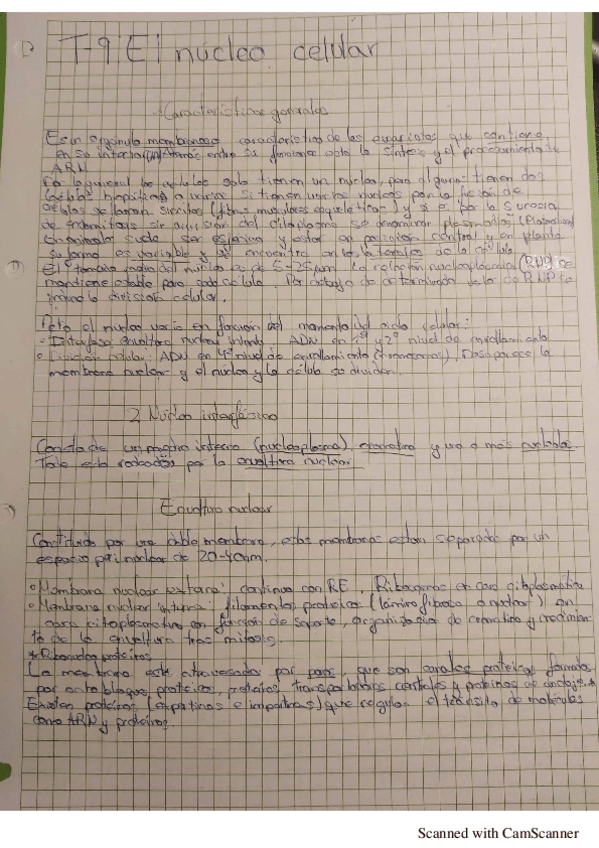 T-9 El núcleo celular
Características generales
Es un orgánulo membranoso característico de las eucariotas que contiene
en su interior entre sus funciones está la síntesis y el procesamiento de
ARN
Por lo general las células solo tienen un núcleo, pero algunas tienen dos
células y varios si tienen muchos núcleos por la fusión de
células se llaman sincitios (fibras musculares esqueléticas) y si es por la sucesión
de endomitosis sin división del citoplasma se denominan plasmodios
En animales suele ser esférico y estar en posición central y en plantas
su forma es variable y se encuentra en la célula
El tamaño medio del núcleo es de 5-25 μm. La relación nucleoplasmática (RNP) se
mantiene estable para cada célula. Por debajo de determinado valor de RNP se
la división celular.
el núcleo varía en función del momento del ciclo celular:
Interfase: envoltura nuclear ADN en 1º y 2º nivel de enrollamiento
División celular: ADN en 4º nivel de enrollamiento (cromosomas). Desaparece la
membrana nuclear y el núcleo y la célula se dividen.
2 Núcleo interfásico
Consta de un medio interno (nucleoplasma), cromatina y uno o más nucléolos.
Todo está rodeado por la envoltura nuclear.
Envoltura nuclear
Constituida por una doble membrana, estas membranas están separadas por un
espacio perinuclear de 20-40nm.
Membrana nuclear externa: continua con RE. Ribosomas en cara citoplasmática
Membrana nuclear interna: filamentos proteicos (lámina fibrosa o nuclear) en
cara con función de soporte, organización de cromatina y
de la envoltura tras mitosis.
La membrana está atravesada por poros, que son canales proteicos formados
por ocho bloques proteicos, proteínas transportadoras centrales y proteínas de anclaje.
Existen proteínas (exportinas e importinas) que regulan el tránsito de moléculas
como ARN y proteínas.
Scanned with CamScanner